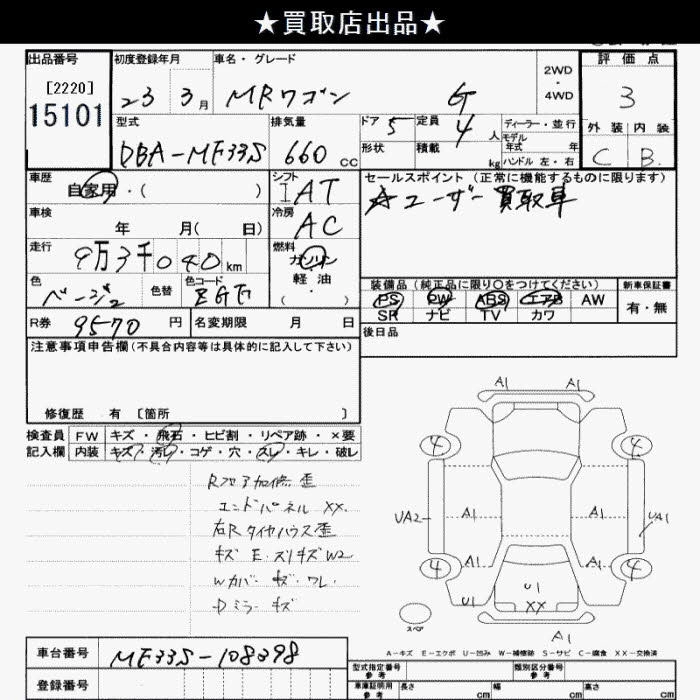 ★買取店出品★
出品番号 初度登録年月 車名・グレード 評価点
[2220]
15101 23 3月 MRワゴン G 2WD・4WD 3
型式 排気量 ドア 5 定員 4人 ディーラー・並行 外装 内装
モデル
DBA-MF33S 660cc 形状 積載 kg 年式 年 C B.
ハンドル 左・右
車歴 シフト セールスポイント (正常に機能するものに限ります)
自家用・( ) IAT ☆ユーザー買取車
車検 年 月( 日) 冷房 AC
走行 燃料
9万3千040km ガソリン
軽油
色 色替 色コード ( ・ )
装備品 (純正品に限り○をつけてください) 新車保証書
ベージュ2 PS PW ABS エアB AW 有・無
SR ナビ TV カワ
R券 9570円 名変期限 月 日 後日品
注意事項申告欄(不具合内容等は具体的に記入して下さい)
修復歴 有 [箇所 ]
検査員 FW キズ・飛石・ヒビ割・リペア跡・×要
記入欄 内装 キズ・汚レ・コゲ・穴・スレ・キレ・破レ
Rフロア加修歪
エンドパネル XX.
右Rタイヤハウス歪
キズ E. スリキズ W2
Wカバー キズ・ワレ.
Dミラー キズ
A1 A1
4 4
UA2 A1 A1 UA1
4 A1 A1 4
U1 U1 A1
XX
スペア
A1
A-キズ E-エクボ U-凹み W-補修跡 S-サビ C-腐食 XX-交換済
車台番号 MF33S-108398
型式指定番号 参考 類別区分番号 参考
登録番号 車庫証明用 参考 長さ cm 幅 cm 高さ cm